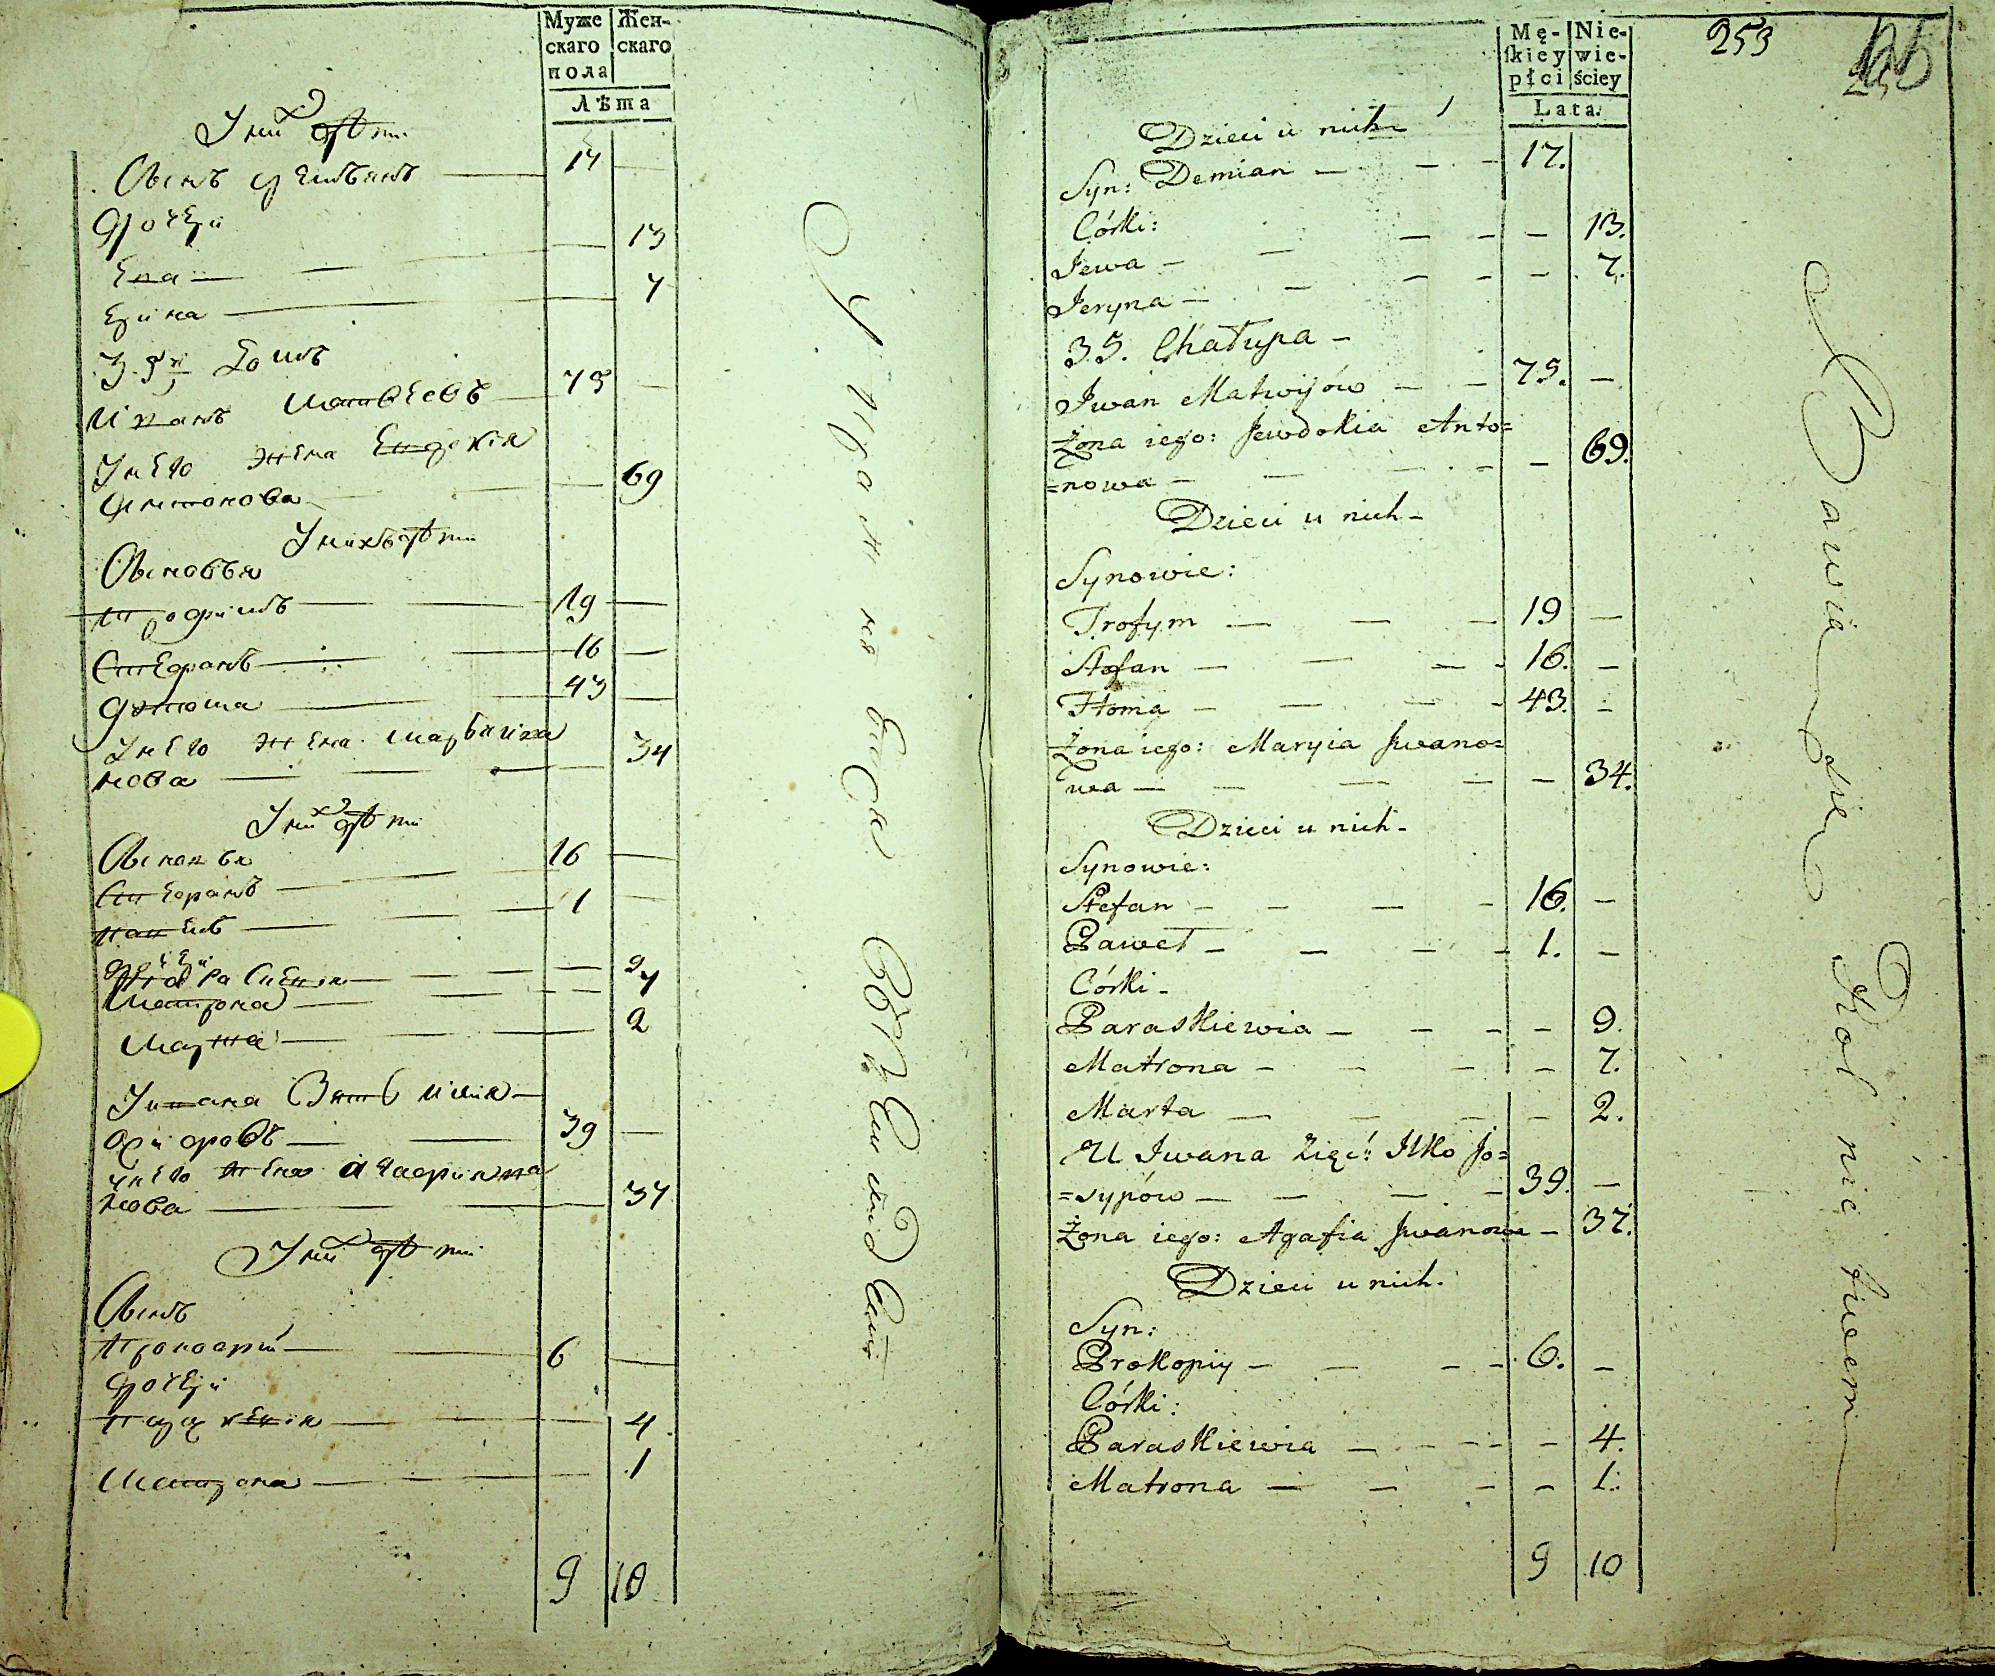 Муже Жен-
скаго скаго
пола
Лѣта
У них дѣти
Сынъ Демьянъ 17
Дочери 13
Ева
Ерина 7
35й Домъ
Иванъ Матвеевъ 75
У него жена Евдокия
Антонова 69
У нихъ дѣти
Сыновья
Трофимъ 19
Степанъ 16
Фтома 43
У него жена Марья Ива
нова 34
У них дѣти
Сыновья 16
Степанъ 1
Павелъ
Дочери
Матрона 7
Марта 2
У Ивана Зять Илия
Осиповъ 39
У него жена Агафия Ива
нова 37
У них дѣти
Сынъ
Прокофий 6
Дочери
Параскевия 4
Матрона 1
9 10
Mę- Nie-
ſkiey wie-
płci ściey
Lata.
253
Dzieci u nich
Syn: Demian — 17.
Córki: — 13.
Jewa — 7.
Jeryna —
35. Chałupa —
Iwan Matwijów — 75. —
Żona iego: Jewdokia Anto=
=nowa — 69.
Dzieci u nich —
Synowie:
Trofym — 19 —
Stefan — 16. —
Ftoma — 43. —
Żona iego: Maryia Iwano=
wa — 34.
Dzieci u nich —
Synowie:
Stefan — 16. —
Paweł — 1. —
Córki —
Paraskiewia — 9.
Matrona — 7.
Marta — 2.
U Iwana Zięć: Ilko Jo=
=sypów — 39. —
Żona iego: Agafia Iwanowa — 37.
Dzieci u nich.
Syn:
Prokopiy — 6. —
Córki:
Paraskiewia — 4.
Matrona — 1.
9 10